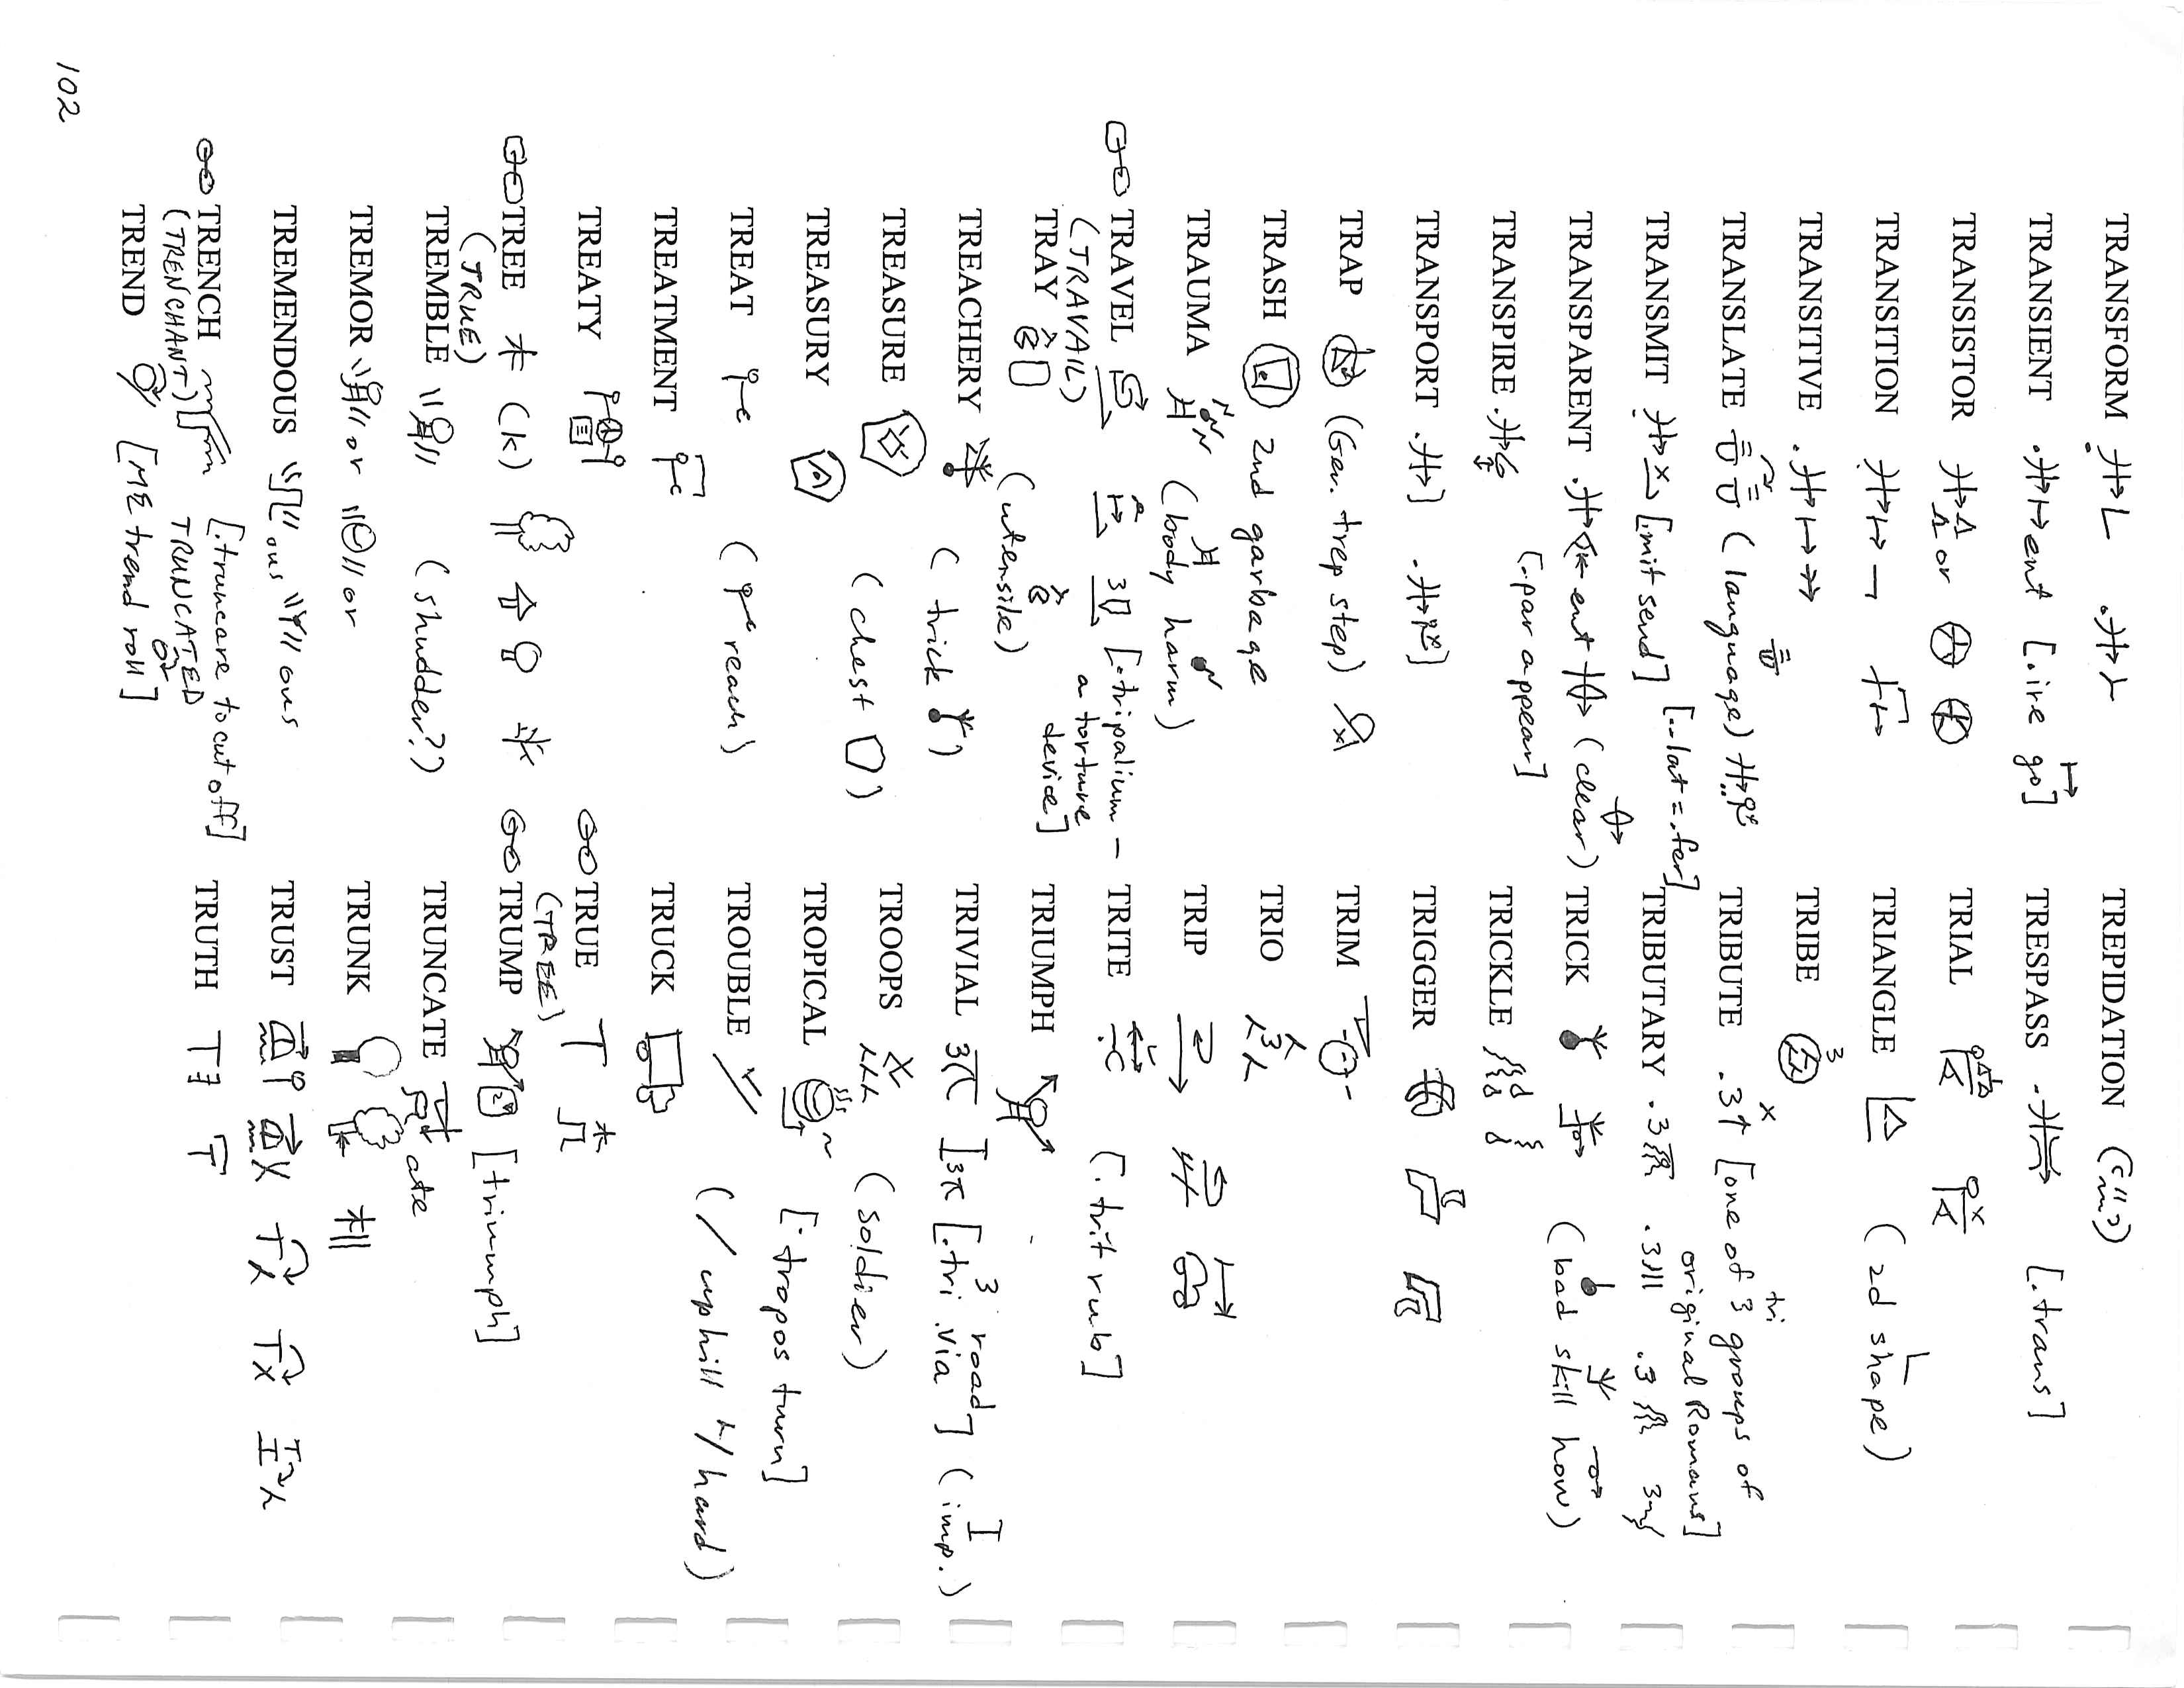 TRANSFORM
TRANSIENT ent [.ire go]
TRANSISTOR or
TRANSITION
TRANSITIVE
TRANSLATE (language)
[..lat = .fer]
TRANSMIT [.mit send]
TRANSPARENT ent (clear)
TRANSPIRE [..par appear]
TRANSPORT
TRAP (Ger. trep step)
TRASH 2nd garbage
TRAUMA (body harm)
TRAVEL [.tripalium -
(TRAVAIL) a torture
device]
TRAY (utensile)
TREACHERY (trick)
TREASURE (chest)
TREASURY
TREAT (reach)
TREATMENT
TREATY
TREE (k)
(TRUE)
TREMBLE (shudder??)
TREMOR or or
TREMENDOUS ous ous
TRENCH [.truncare to cut off]
(TRENCHANT) TRUNCATED
TREND [ME trend roll]
TREPIDATION
TRESPASS [.trans]
TRIAL
TRIANGLE (2d shape)
TRIBE 3
tri
TRIBUTE .3 [one of 3 groups of
original Romans]
TRIBUTARY .3 .3 .3 3
TRICK (bad skill how)
TRICKLE
TRIGGER
TRIM
TRIO 3
TRIP
TRITE [.trit rub]
TRIUMPH
3 road
TRIVIAL 3 [.tri .via] (imp.)
TROOPS (soldier)
TROPICAL [.tropos turn]
TROUBLE (/ uphill / hard)
TRUCK
TRUE
(TREE)
TRUMP [triumph]
TRUNCATE ate
TRUNK
TRUST
TRUTH
102